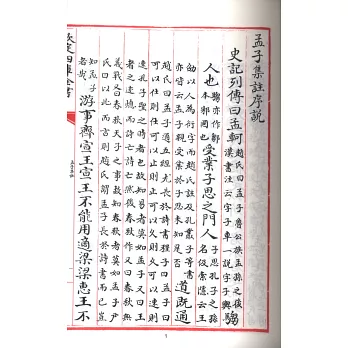 孟子集註序說
史記列傳曰孟軻趙氏曰孟子魯公族孟孫之後漢書注云字子車一說字子輿騶
人也騶亦作鄒本邾國也受業子思之門人子思孔子之孫名伋索隱云王
劭以人為衍字而趙氏註及孔叢子等書亦皆云孟子親受業於子思未知是否道既通
趙氏曰孟子通五經尤長於詩書程子曰孟子曰可以仕則仕可以止則止可以久則久可以速則
速孔子聖之時者也故知易者莫如孟子又曰王者之迹熄而詩亡詩亡然後春秋作又曰春秋無
義戰又曰春秋天子之事故知春秋者莫如孟子尹氏曰以此而言則趙氏謂孟子長於詩書而已豈
知孟子者哉游事齊宣王宣王不能用適梁梁惠王不
欽定四庫全書